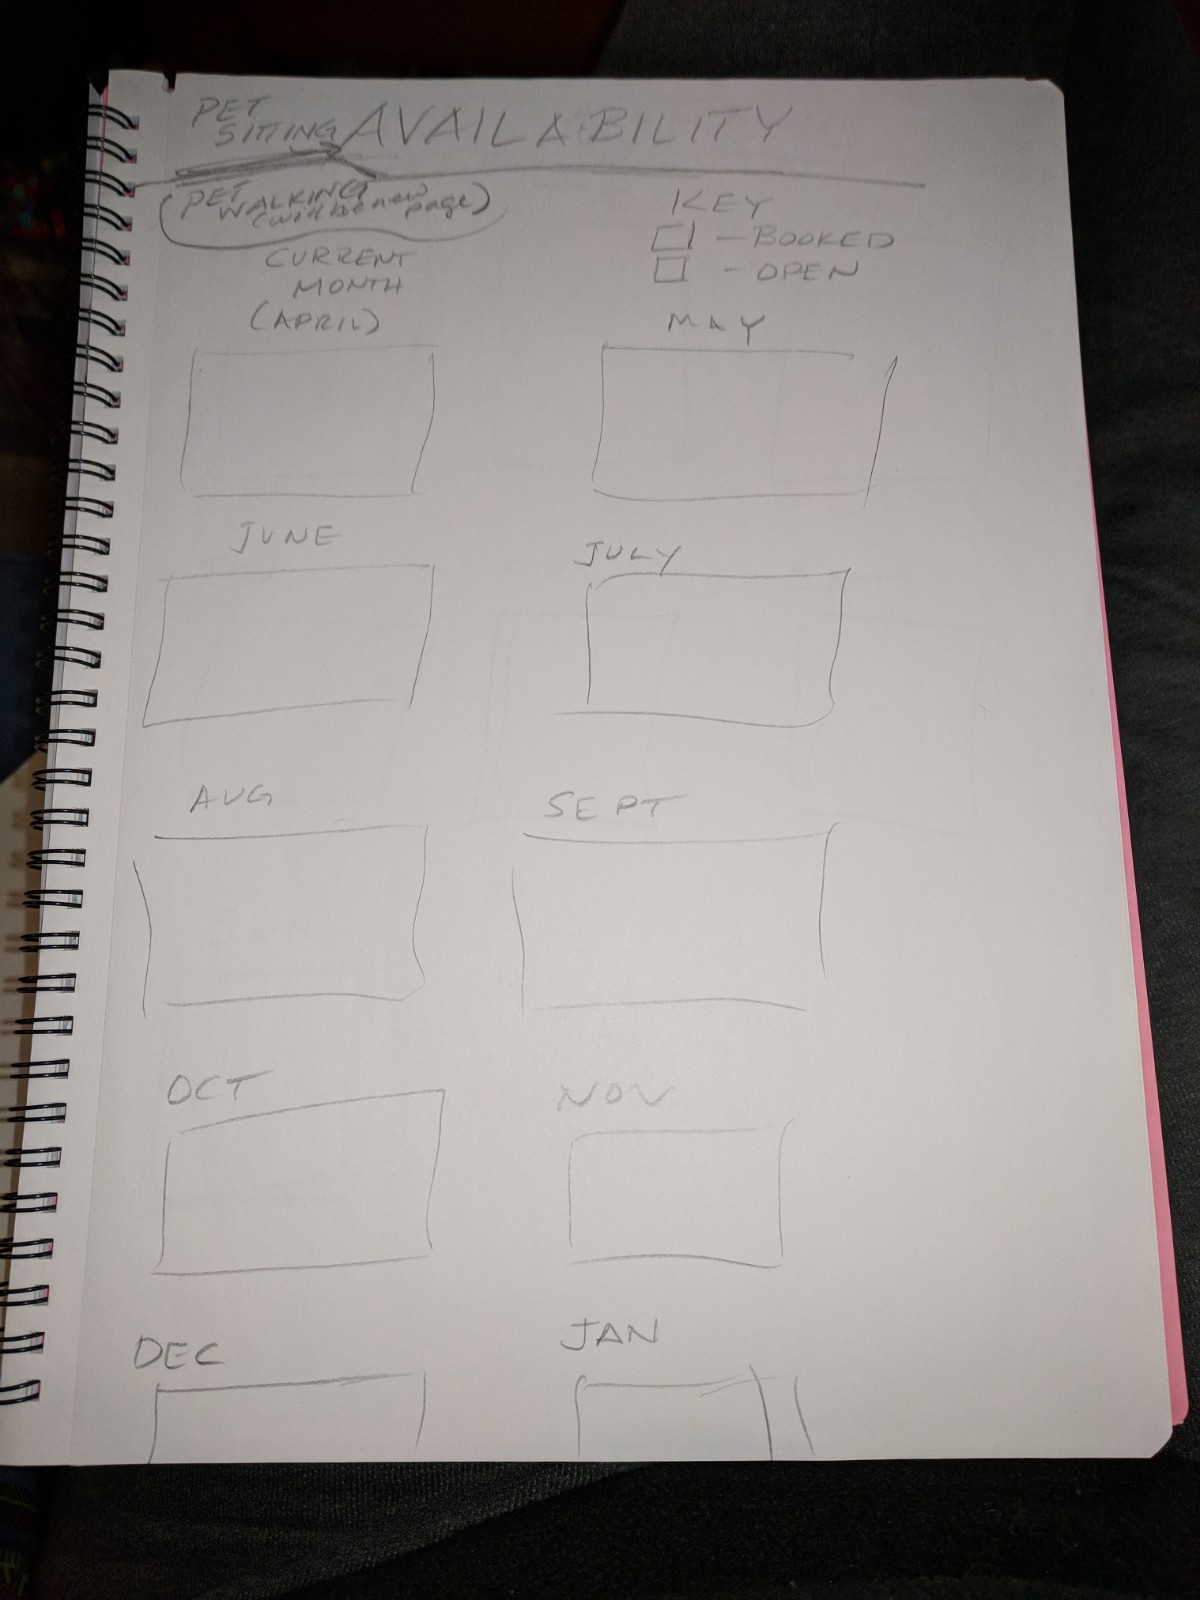 PET
SITTING AVAILABILITY
(PET
WALKING
(will be new page)
KEY
- BOOKED
- OPEN
CURRENT
MONTH
(APRIL)
MAY
JUNE
JULY
AUG
SEPT
OCT
NOV
DEC
JAN